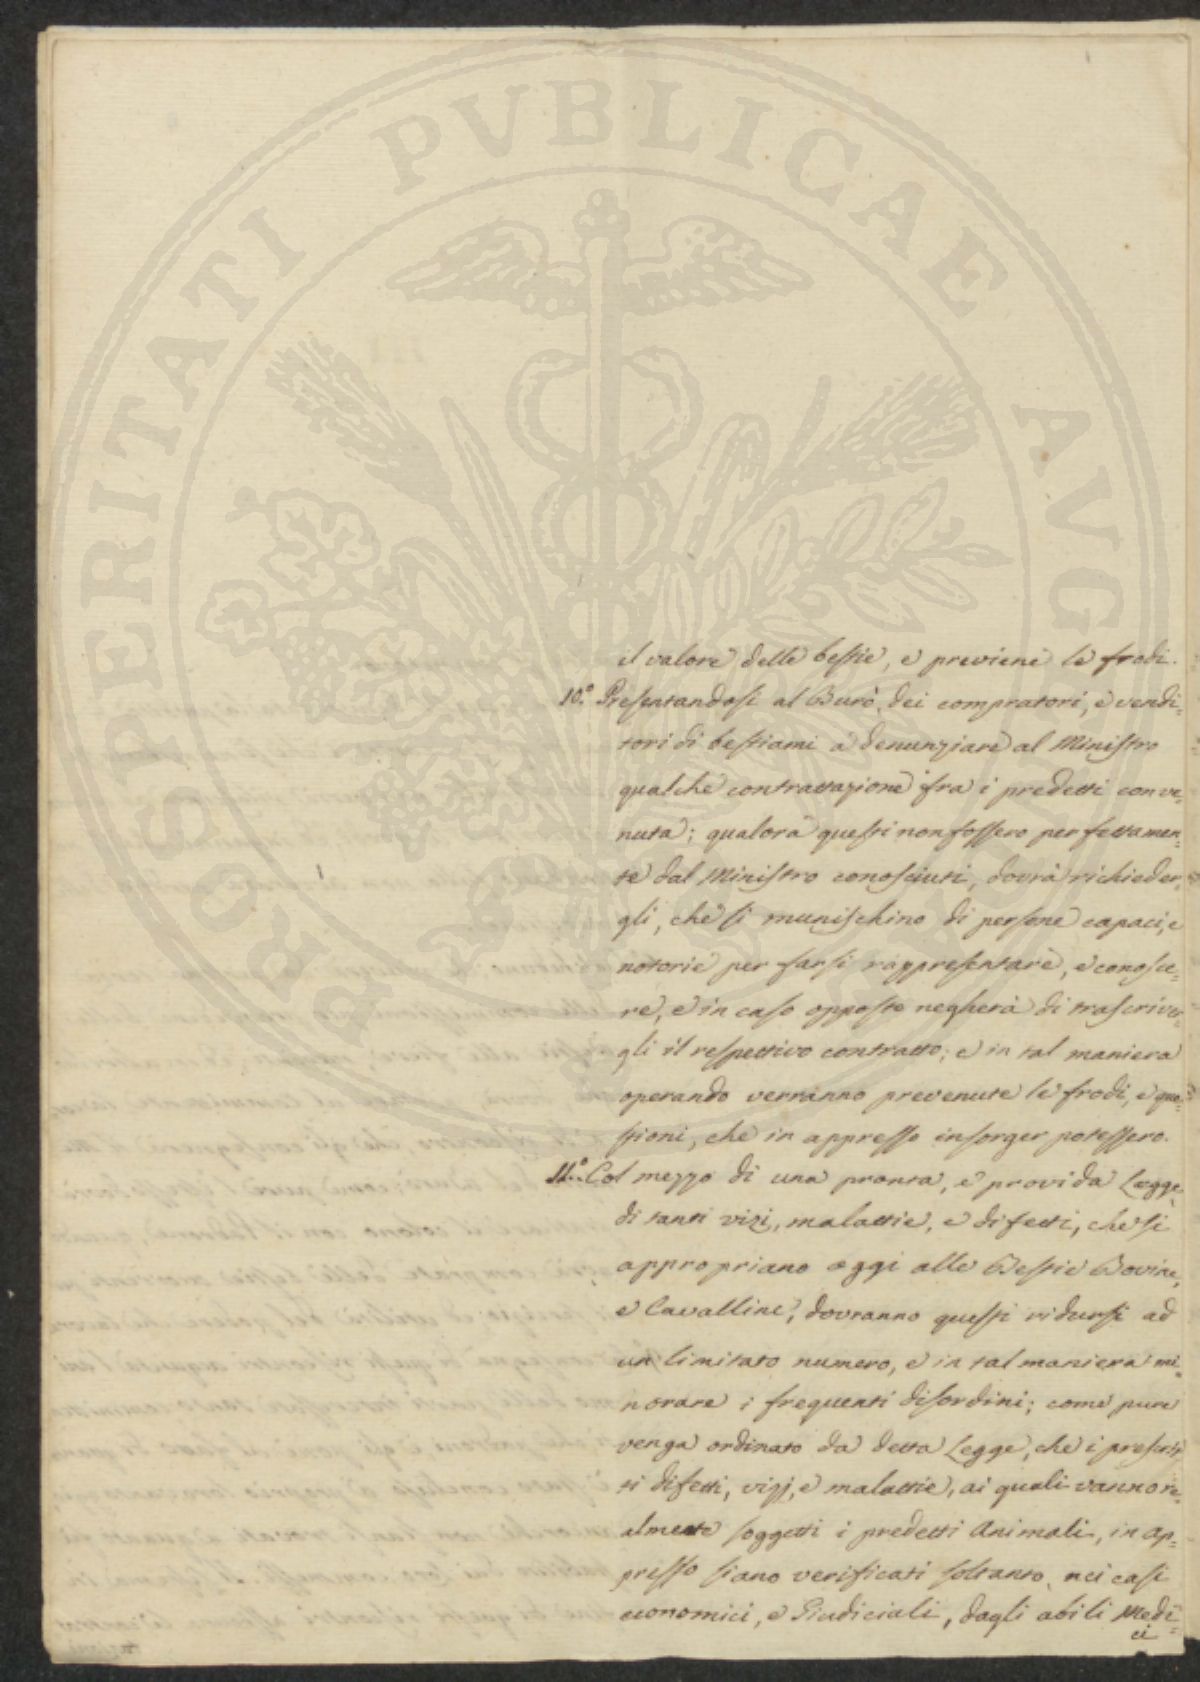 PROSPERITATI PUBLICAE AUG
il valore delle bestie, e previene le frodi.
10.° Presentandosi al Burò, dei compratori, e vendi-
tori di bestiami a denunziare al Ministro
qualche contrattazione fra i predetti conve-
nuta; qualora questi non fossero perfettamen-
te dal Ministro conosciuti, dovrà richieder-
gli, che si munischino di persone capaci, e
notorie per farsi rappresentare, e conosce-
re, e in caso opposto negherà di trascriver-
gli il respettivo contratto; e in tal maniera
operando verranno prevenute le frodi, e que-
stioni, che in appresso insorger potessero.
11.° Col mezzo di una pronta, e provida Legge
di tanti vizi, malattie, e difetti, che si
appropriano oggi alle Bestie Bovine,
e Cavalline, dovranno questi ridursi ad
un limitato numero, e in tal maniera mi-
norare i frequenti disordini; come pure
venga ordinato da detta Legge, che i prescrit-
ti difetti, vizj, e malattie, ai quali vanno re-
almente soggetti i predetti Animali, in ap-
presso siano verificati soltanto, nei casi
economici, e Giudiciali, dagli abili Medi-
ci